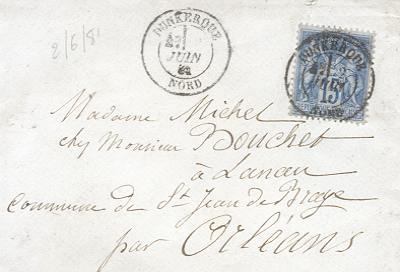 2/6/81
DUNKERQUE
JUIN
81
NORD
DUNKERQUE
15
NORD
Madame Michel
chez Monsieur Bouchet
à Lanceau
Commune de St Jean de Braye
par Orléans